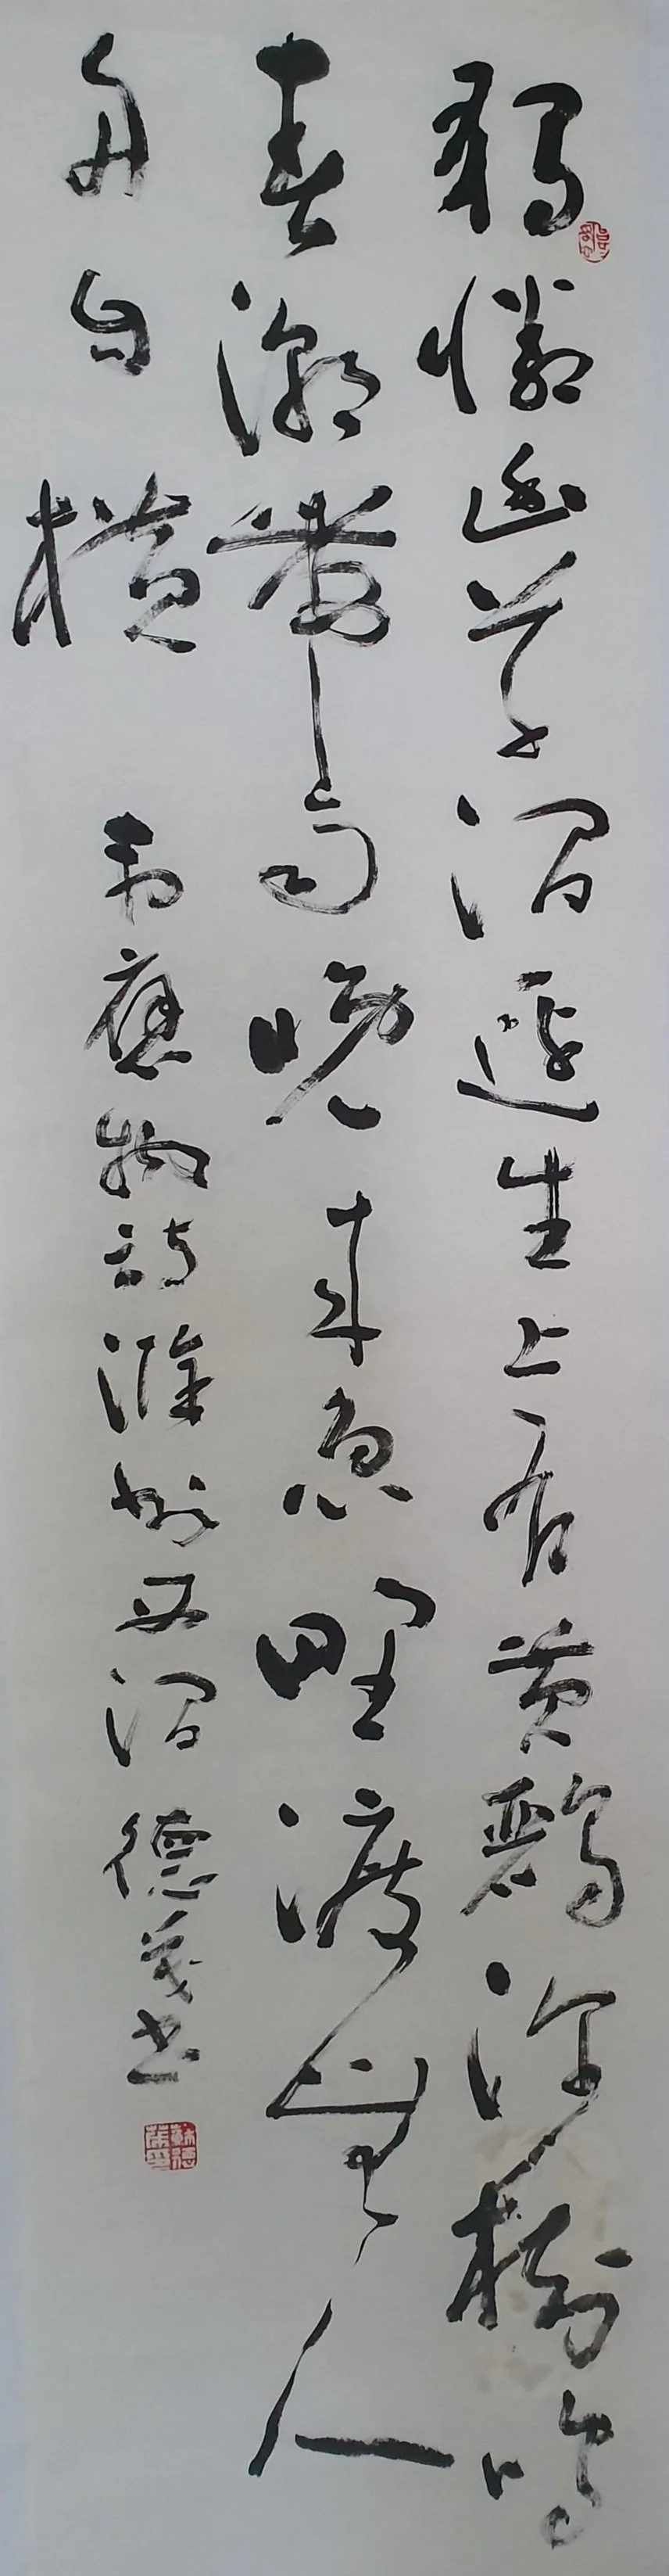 獨憐幽草澗邊生上有黃鸝深樹鳴
春潮帶雨晚來急野渡無人
舟自橫 韋應物詩滁州西澗 德茂書